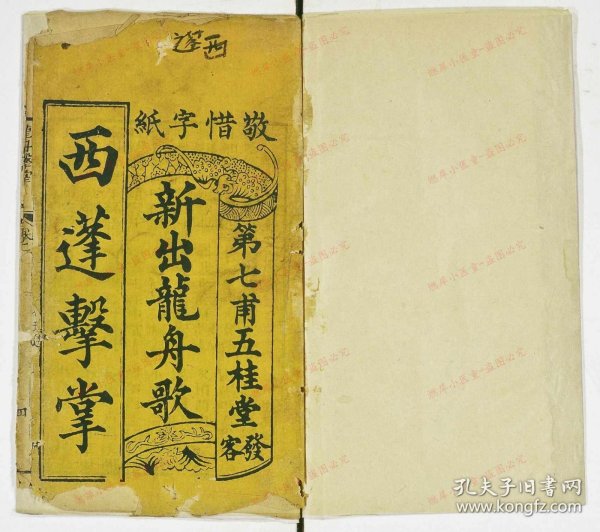 西蓬
敬惜字紙
第七甫五桂堂發客
新出龍舟歌
西蓬擊掌
孔夫子旧书网
www.kongfz.com